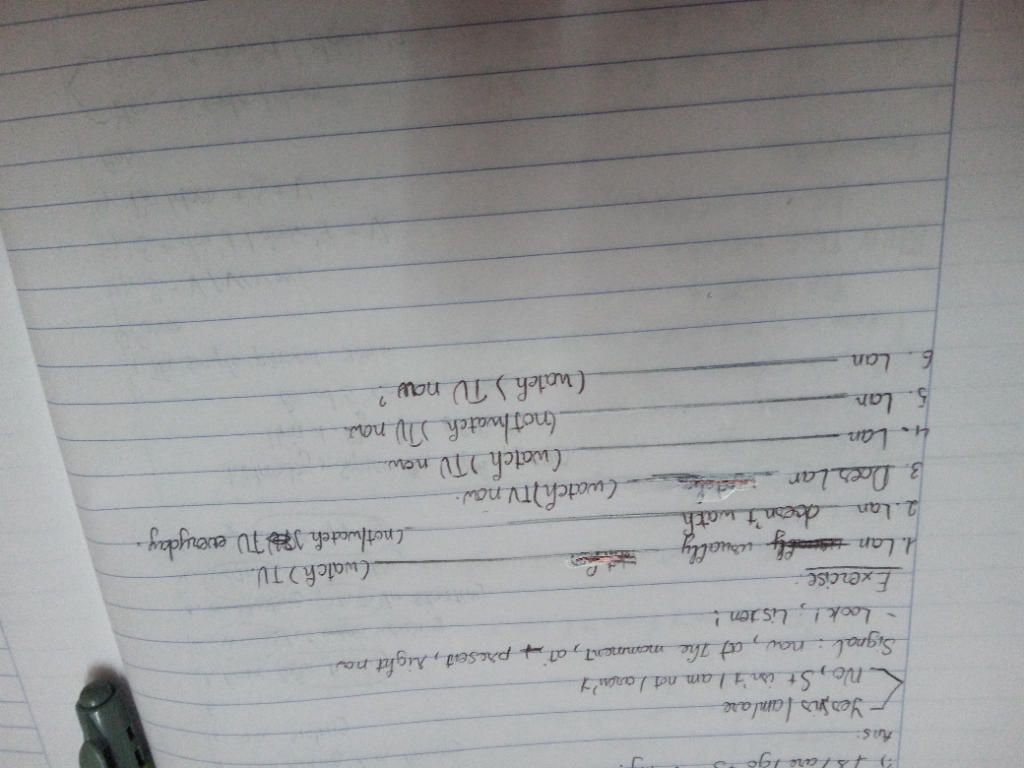 Ans:
Yes, S is / am / are
No, S + isn't / am not / aren't
Signal: now, at the momment, at present, right now
- Look!, Listen!
Exercise:
1. Lan usually ______ (watch) TV.
2. Lan doesn't wath ______ (not/watch) TV everyday.
3. Does Lan ______ (watch) TV now.
4. Lan ______ (watch) TV now
5. Lan ______ (not/watch) TV now
6. Lan ______ (watch) TV now?